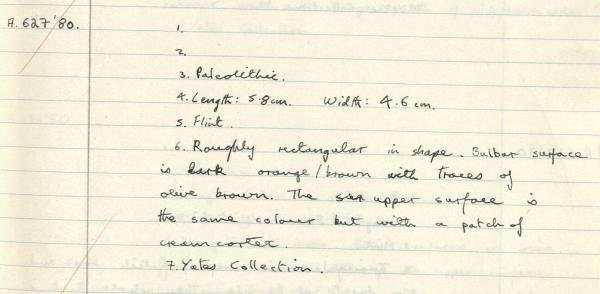 A.627'80.
1.
2.
3. Paleolithic.
4. Length: 5.8cm. Width: 4.6cm.
5. Flint.
6. Roughly rectangular in shape. Bulbar surface
is dark orange/brown with traces of
olive brown. The upper surface is
the same colour but with a patch of
cream cortex.
7. Yates Collection.